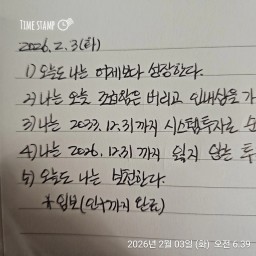 TIME STAMP
2026. 2. 3(화)
1) 오늘도 나는 어제보다 성장한다.
2) 나는 오늘 조급함은 버리고 인내심을 가
3) 나는 2033. 12. 31 까지 시스템투자로 순
4) 나는 2026. 12. 31 까지 잃지 않는 투
5) 오늘도 나는 실천한다.
2026년 2월 03일 (화) 오전 6:39